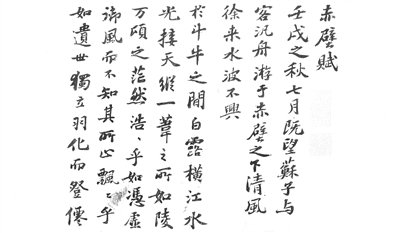 赤壁賦
壬戌之秋七月既望蘇子与
客汎舟游于赤壁之下清風
徐来水波不興
於斗牛之間白露横江水
光接天縱一葦之所如陵
万頃之茫然浩〻乎如憑虚
御風而不知其所止飄〻乎
如遺世獨立羽化而登僊